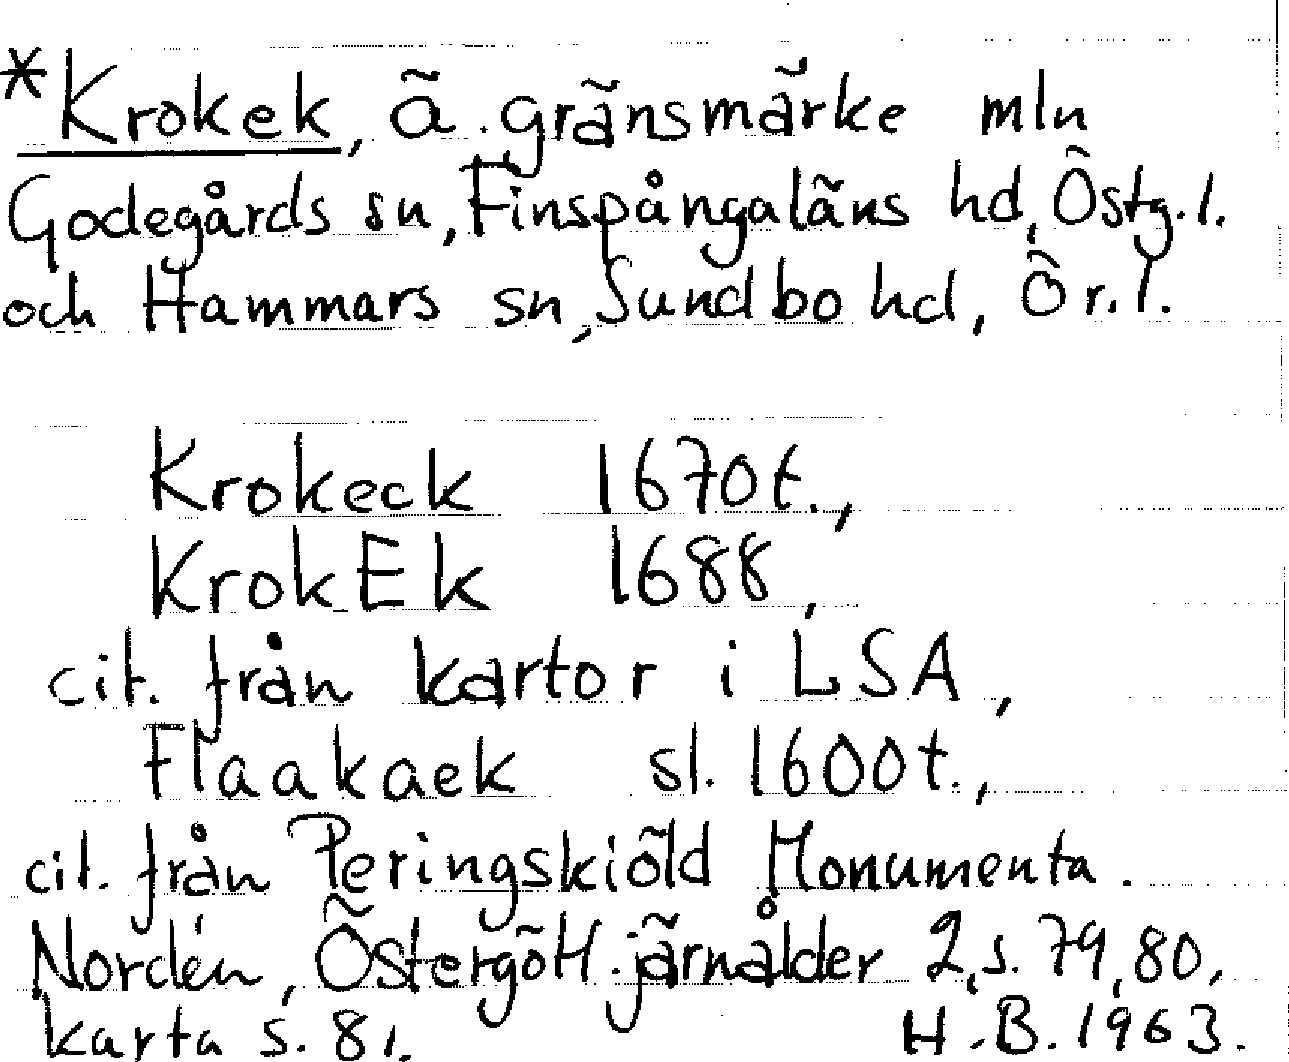 *Krokek, ä. gränsmärke mln
Godegårds sn, Finspångaläns hd, Östg.l.
och Hammars sn, Sundbo hd, Ör.l.
Krokeck 1670t.,
KrokEk 1688,
cit. från kartor i LSA,
Flaakaek sl. 1600t.,
cit. från Peringskiöld Monumenta.
Nordén, Östergötl. järnålder 2, s. 79, 80,
karta s. 81.
H.B. 1963.